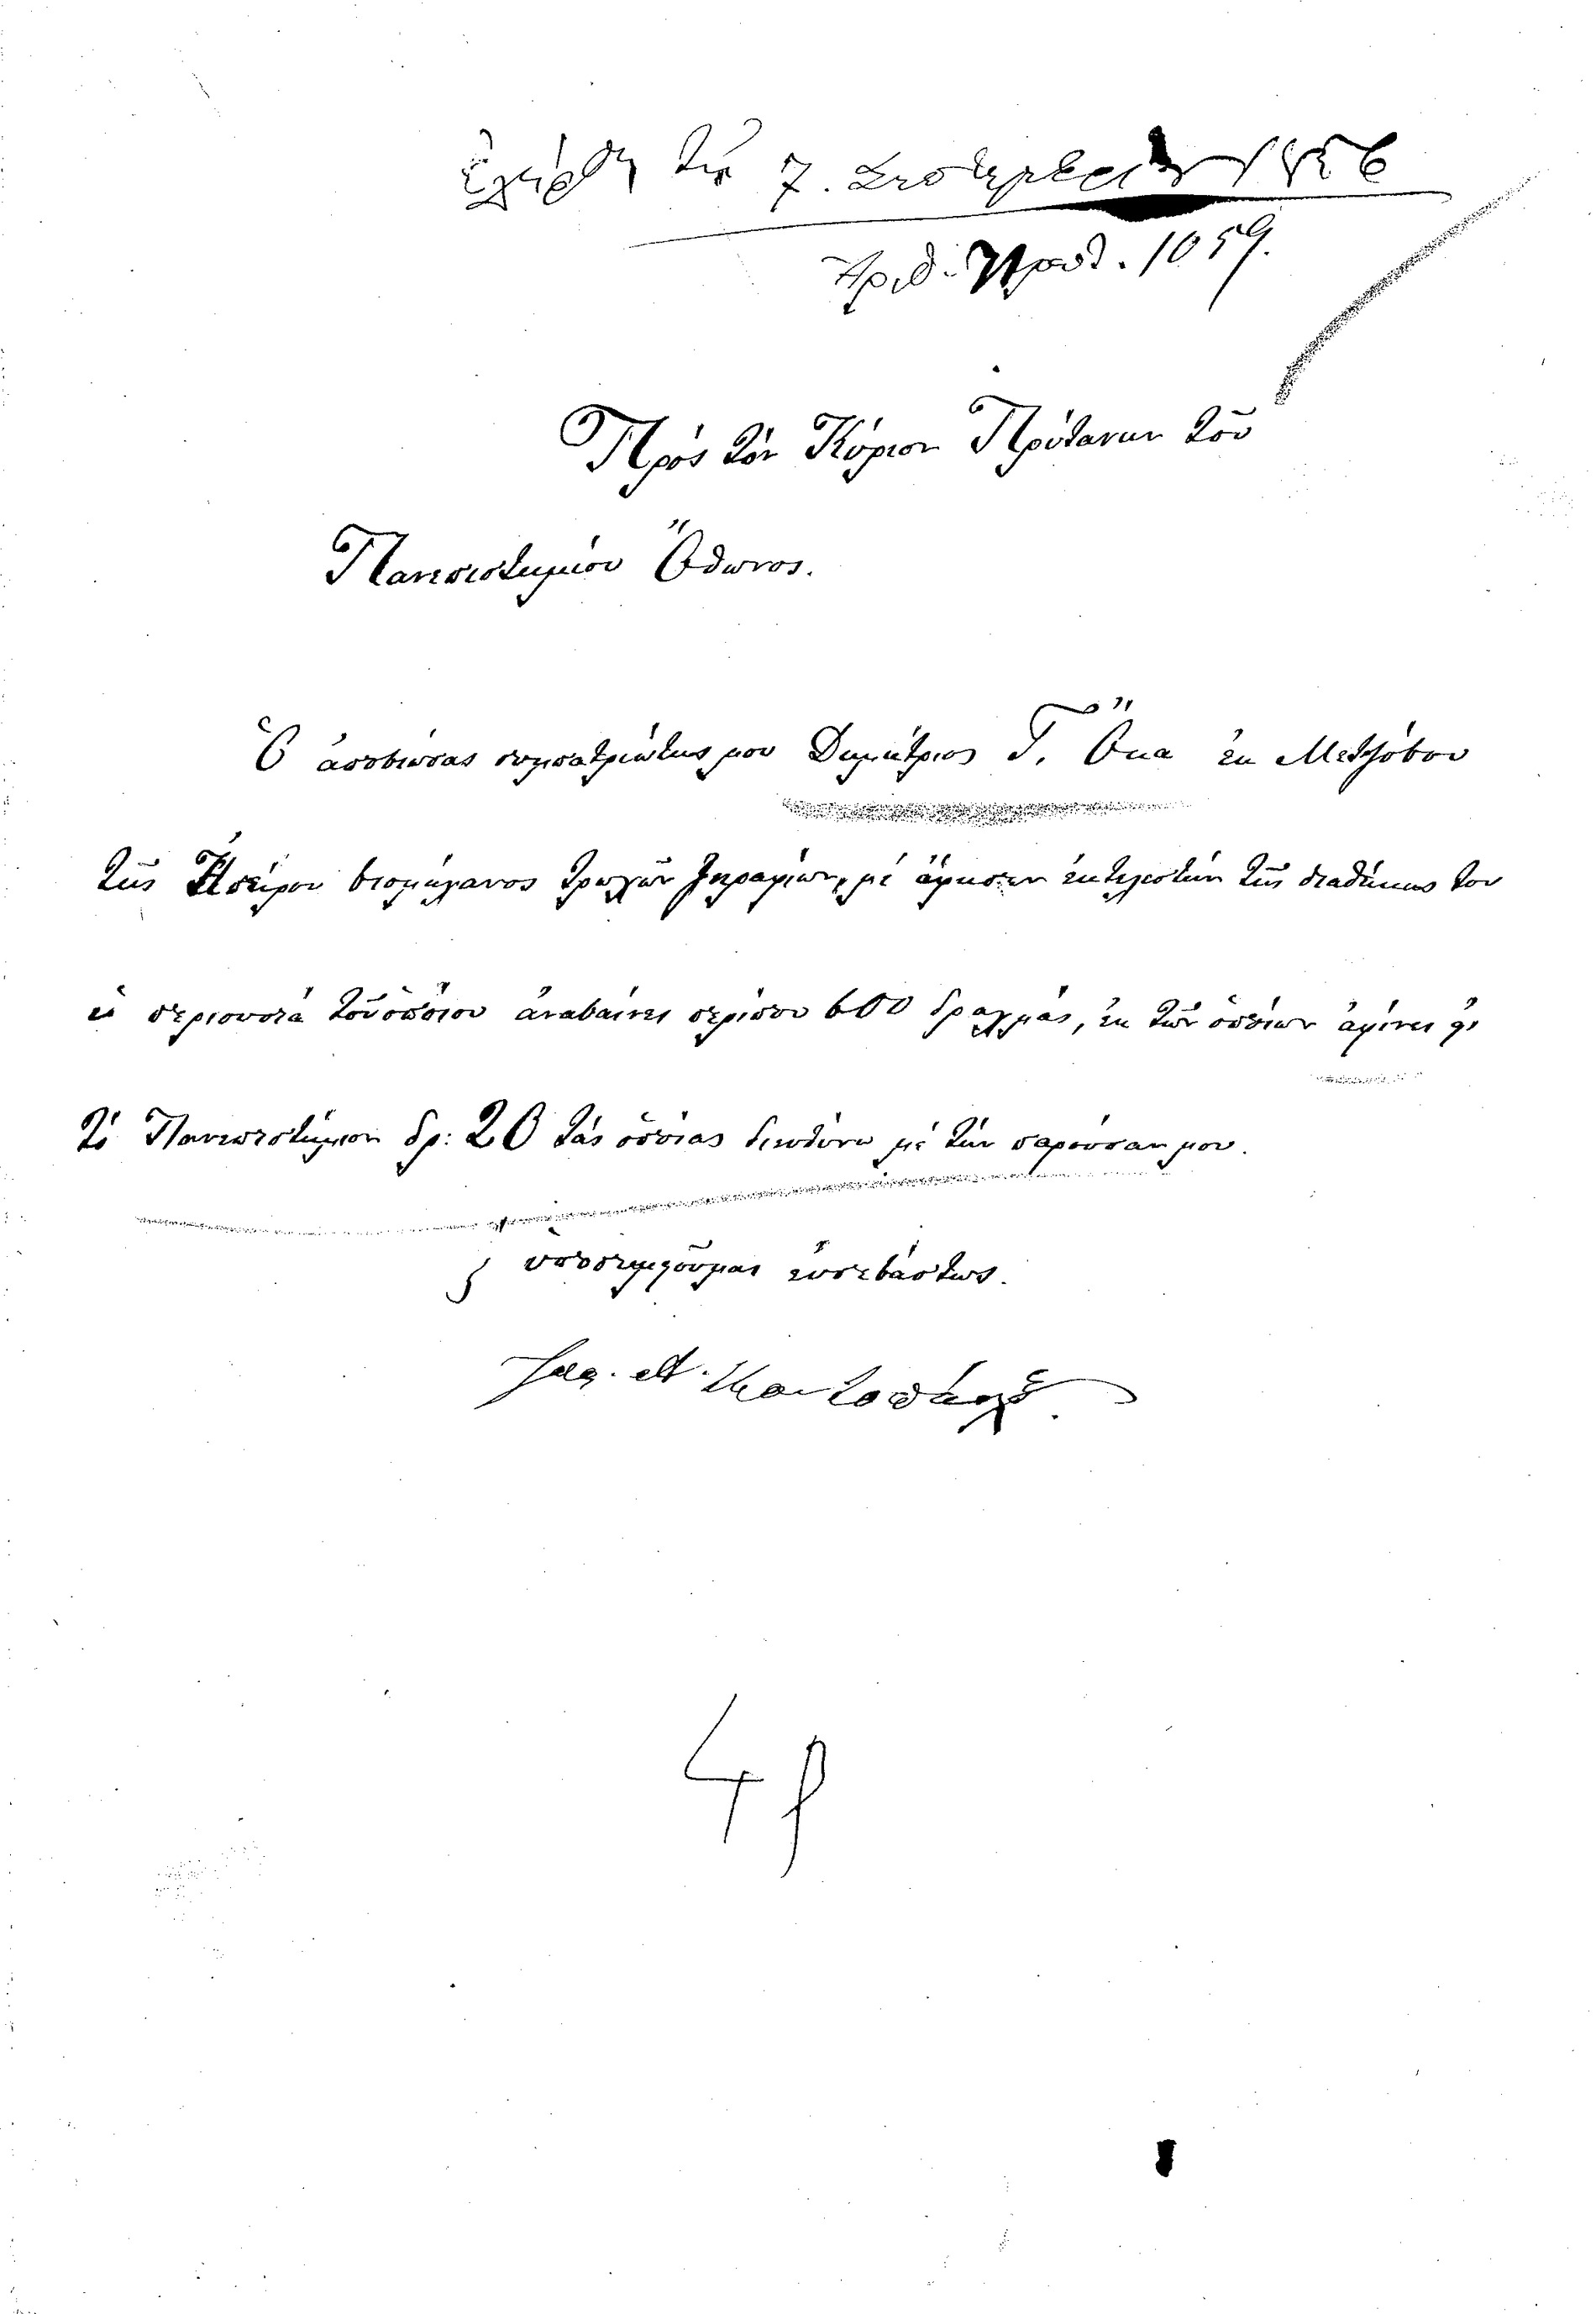 Ἐλήφθη τῇ 7. Σεπτεμβρίου 1856
Ἀριθ. Πρωτ. 1059.
Πρὸς τὸν Κύριον Πρύτανιν τοῦ
Πανεπιστημίου Ὄθωνος.
Ὁ ἀποβιώσας συμπατριώτης μου Δημήτριος Γ. Ὄκα ἐκ Μετζόβου
τῆς Ἠπείρου βιομήχανος τρωγῶν ξηραμίων, μὲ ἄφησεν ἐκτελεστὴν τῆς διαθήκης του
ἡ περιουσία τοῦ ὁποίου ἀναβαίνει περίπου 600 δραχμάς, ἐκ τῶν ὁποίων ἀφίνει εἰς
τὸ Πανεπιστήμιον δρ: 20 τὰς ὁποίας διευθύνω μὲ τὴν παροῦσαν μου.
ὑποσημειοῦμαι εὐσεβάστως.